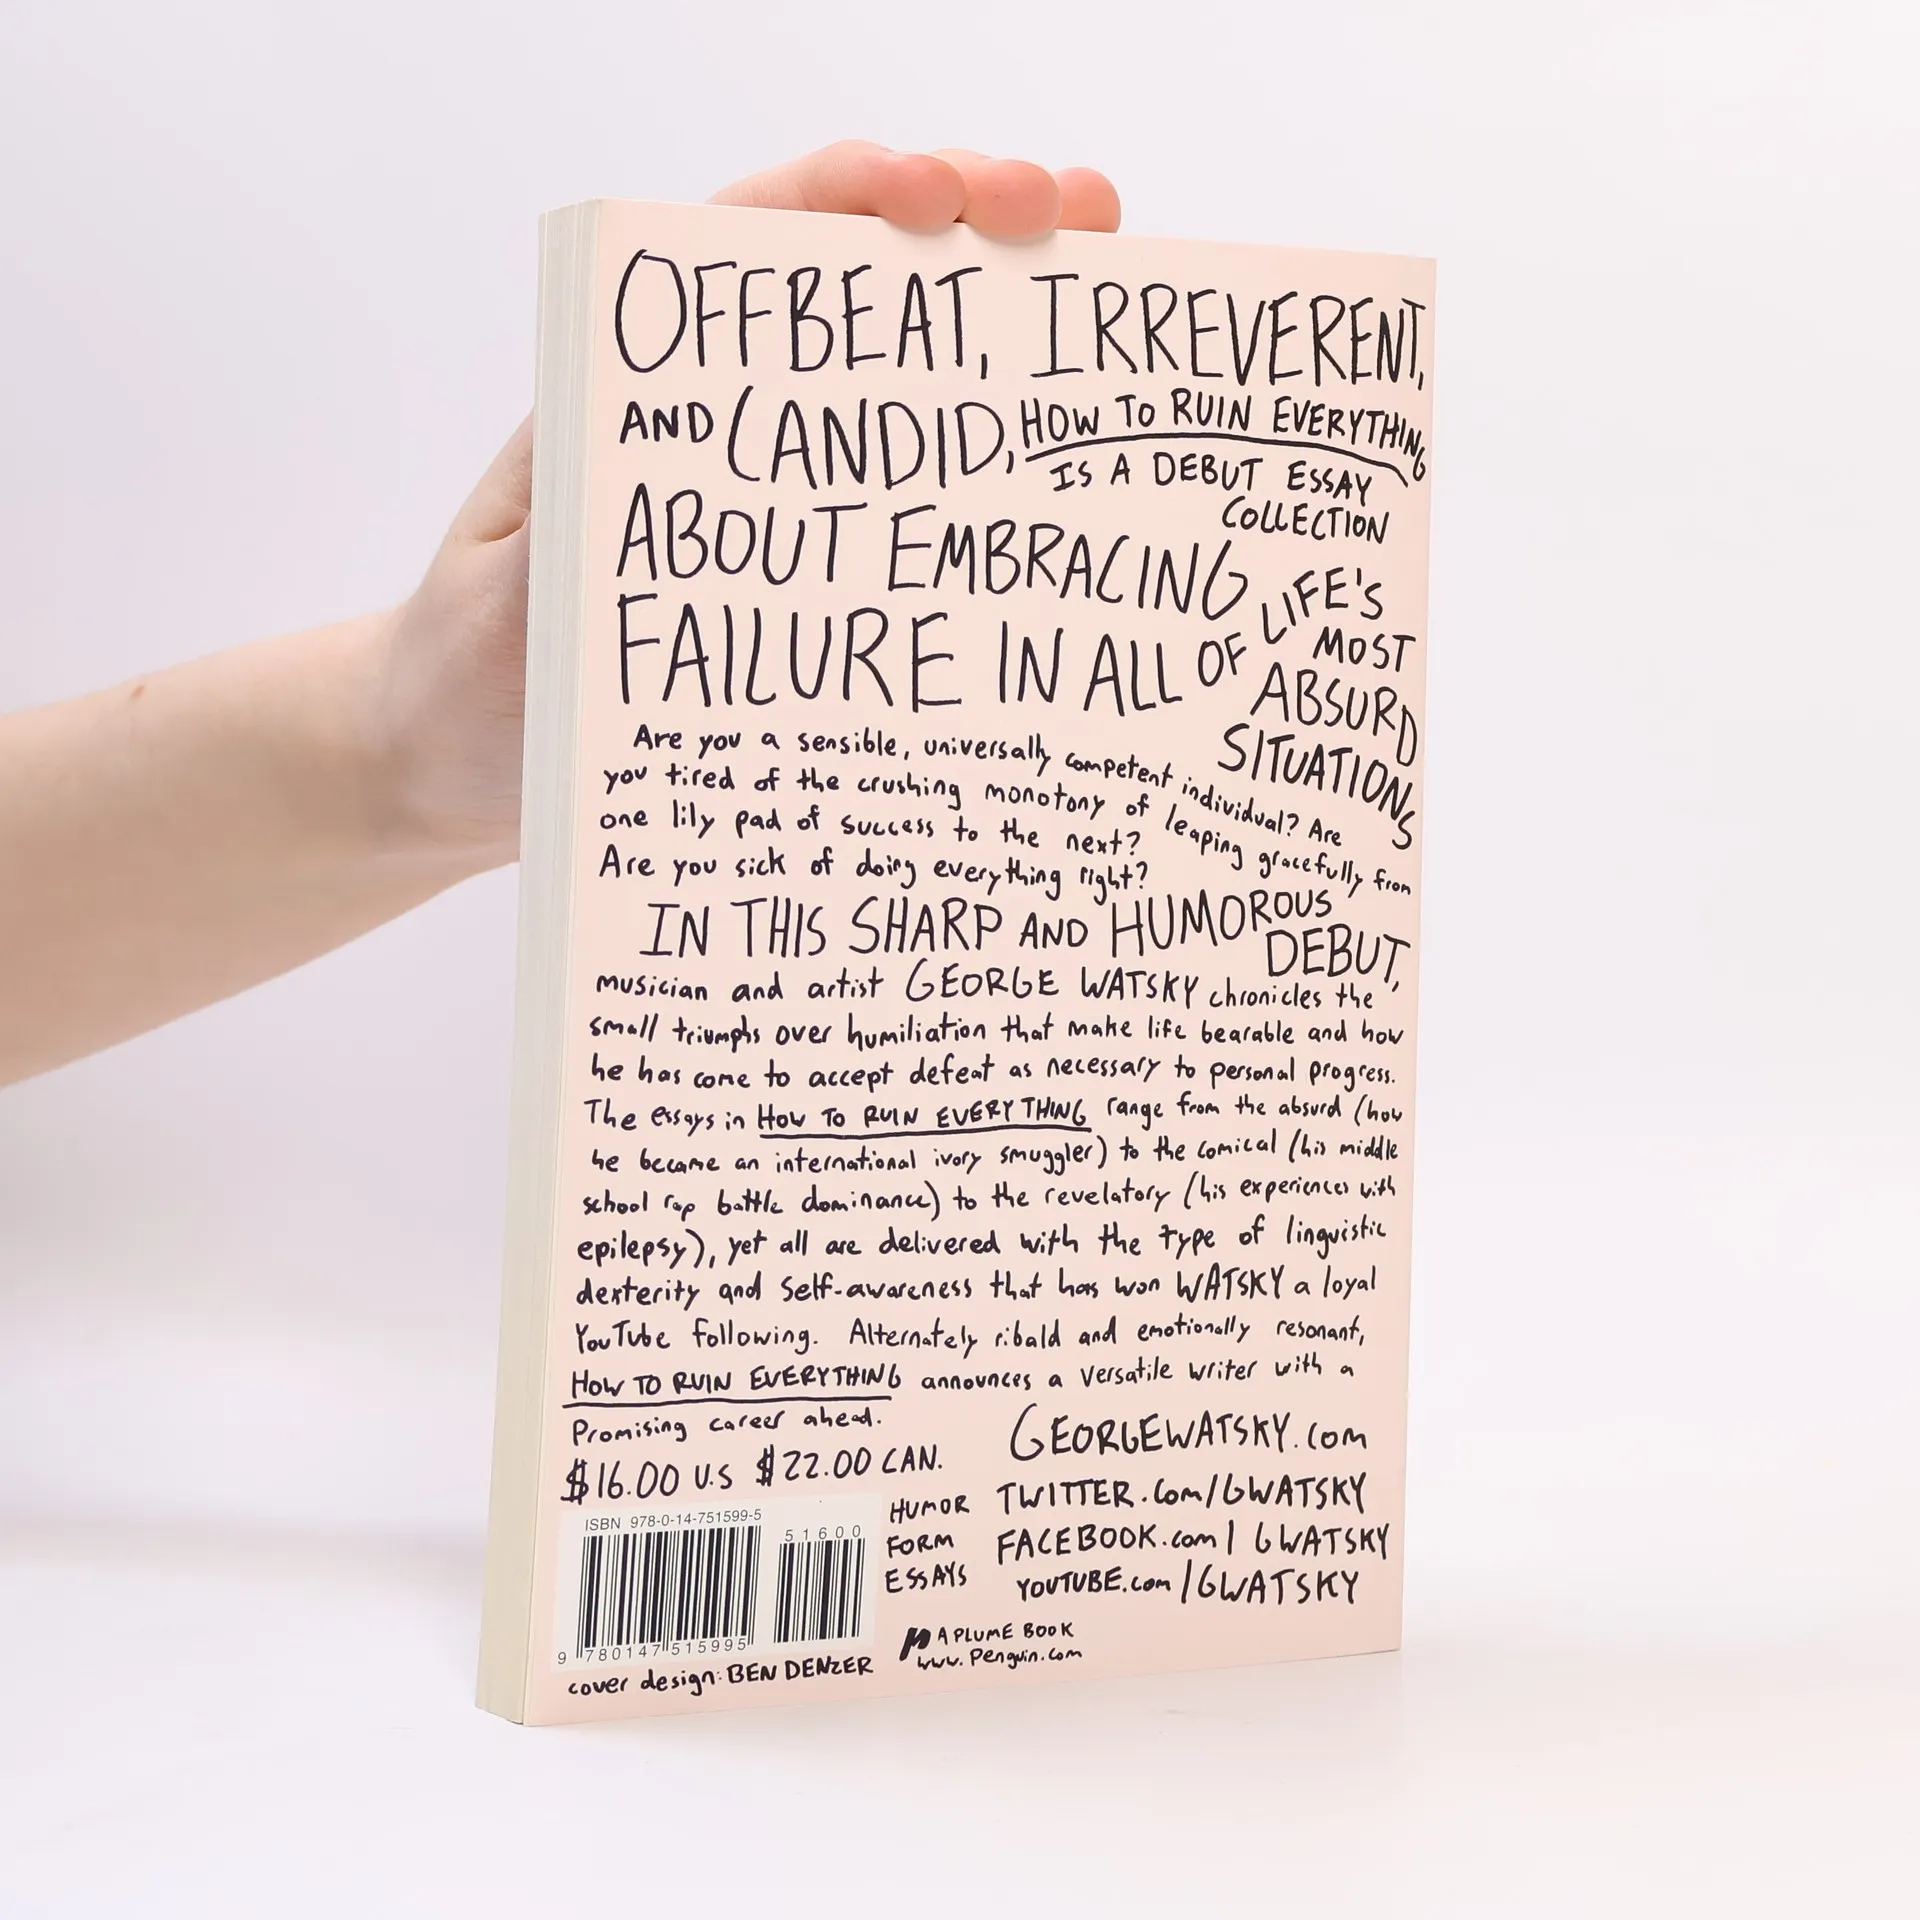 OFFBEAT, IRREVERENT,
AND CANDID, HOW TO RUIN EVERYTHING
IS A DEBUT ESSAY
COLLECTION
ABOUT EMBRACING
FAILURE IN ALL OF LIFE'S
MOST
ABSURD
SITUATIONS
Are you a sensible, universally competent individual? Are
you tired of the crushing monotony of leaping gracefully from
one lily pad of success to the next?
Are you sick of doing everything right?
IN THIS SHARP AND HUMOROUS
DEBUT,
musician and artist GEORGE WATSKY chronicles the
small triumphs over humiliation that make life bearable and how
he has come to accept defeat as necessary to personal progress.
The essays in HOW TO RUIN EVERYTHING range from the absurd (how
he became an international ivory smuggler) to the comical (his middle
school rap battle dominance) to the revelatory (his experiences with
epilepsy), yet all are delivered with the type of linguistic
dexterity and self-awareness that has won WATSKY a loyal
YouTube following. Alternately ribald and emotionally resonant,
HOW TO RUIN EVERYTHING announces a versatile writer with a
Promising career ahead.
$16.00 U.S $22.00 CAN.
ISBN 978-0-14-751599-5
51600
9 780147 515995
cover design: BEN DENZER
HUMOR
FORM
ESSAYS
GEORGEWATSKY.com
TWITTER.com/GWATSKY
FACEBOOK.com/GWATSKY
YOUTUBE.com/GWATSKY
A PLUME BOOK
www.Penguin.com